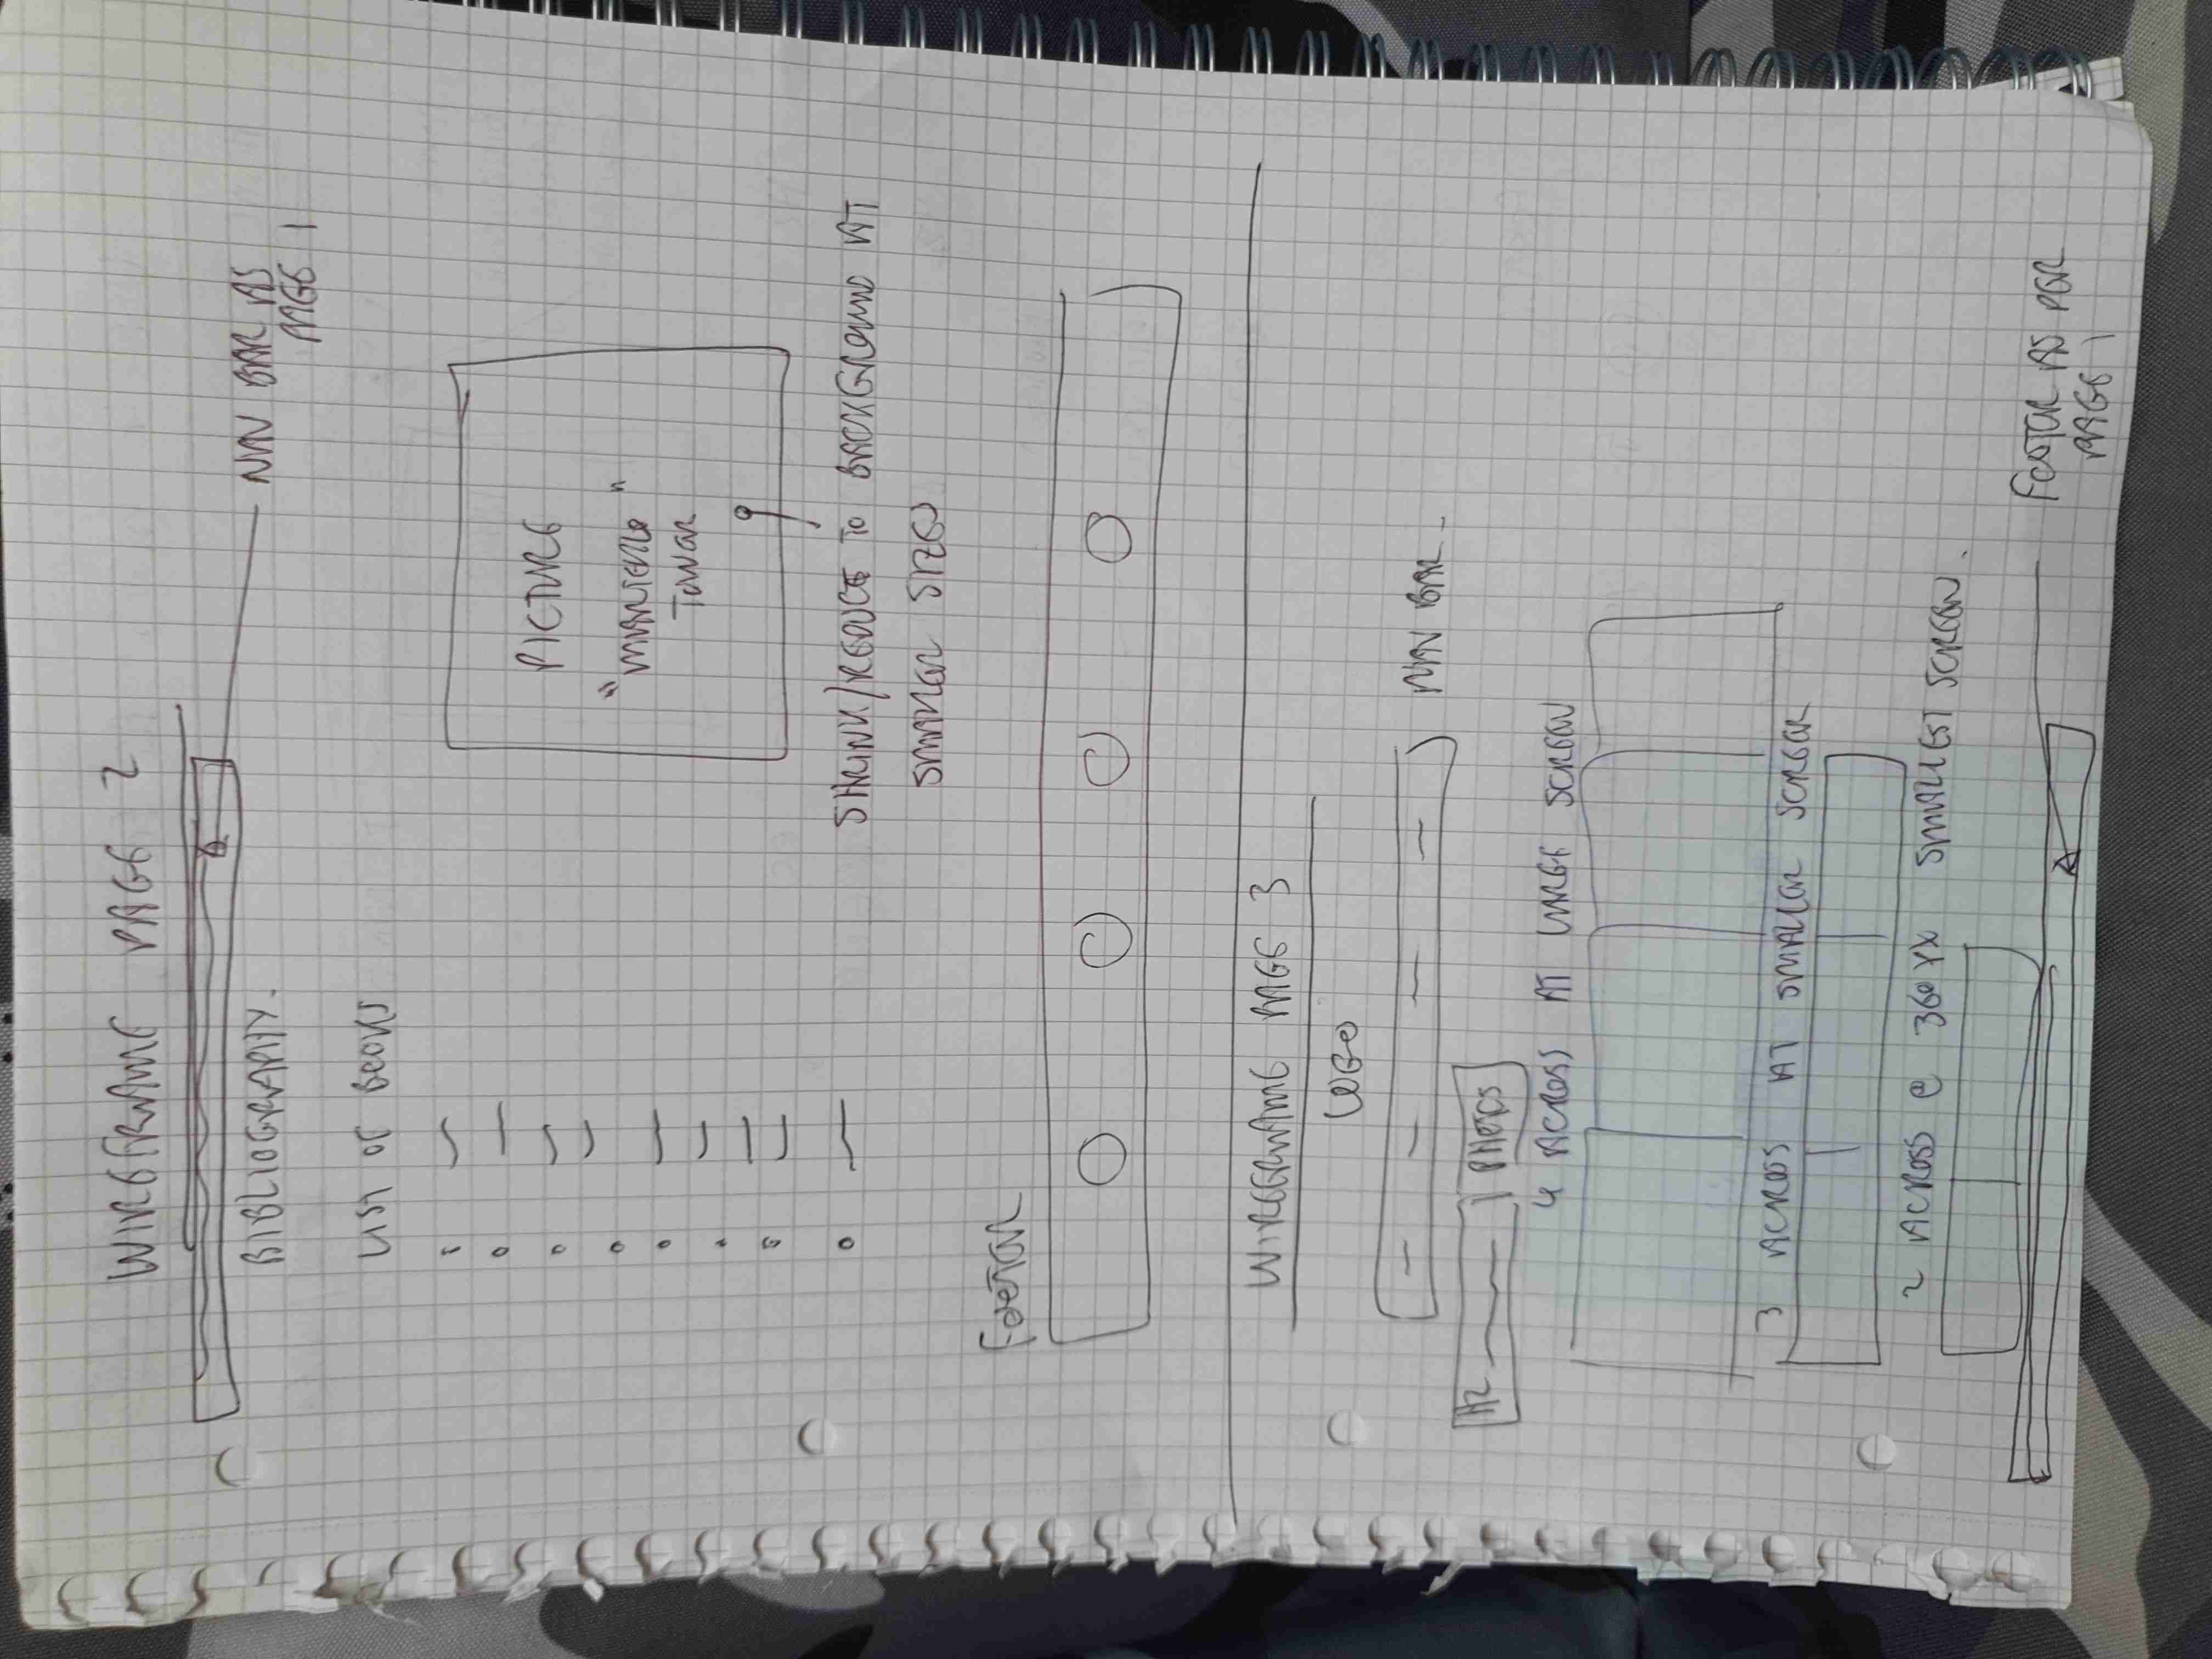 WIREFRAME PAGE 2
BIBLIOGRAPHY.
NAV BAR AS
PAGE 1
LIST OF BOOKS
PICTURE
"MARTELLO"
TOWER
SHRINK/REDUCE TO BACKGROUND AT
SMALLER SIZES
FOOTER
WIREFRAME PAGE 3
LOGO
NAV BAR
H2 PHOTOS
4 ACROSS AT LARGE SCREEN
3 ACROSS AT SMALLER SCREEN
2 ACROSS @ 360 PX SMALLEST SCREEN.
FOOTER AS PER
PAGE 1